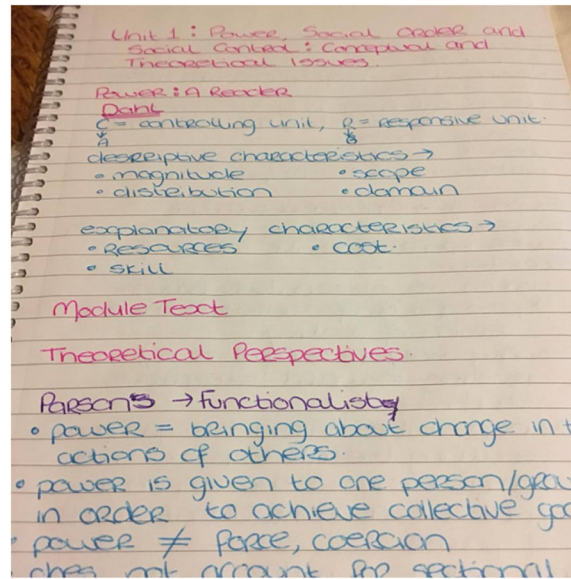 Unit 1: Power, Social Order and
Social Control: Conceptual and
Theoretical Issues.
Power: A Reader
Dahl
C = controlling unit, R = responsive unit.
A B
descriptive characteristics →
• magnitude • scope
• distribution • domain
explanatory characteristics →
• Resources • cost.
• skill
Module Text
Theoretical Perspectives.
Parsons → Functionalist
• power = bringing about change in
actions of others.
• power is given to one person/grou
in order to achieve collective goa
• power ≠ force, coercion
does not account for sectional